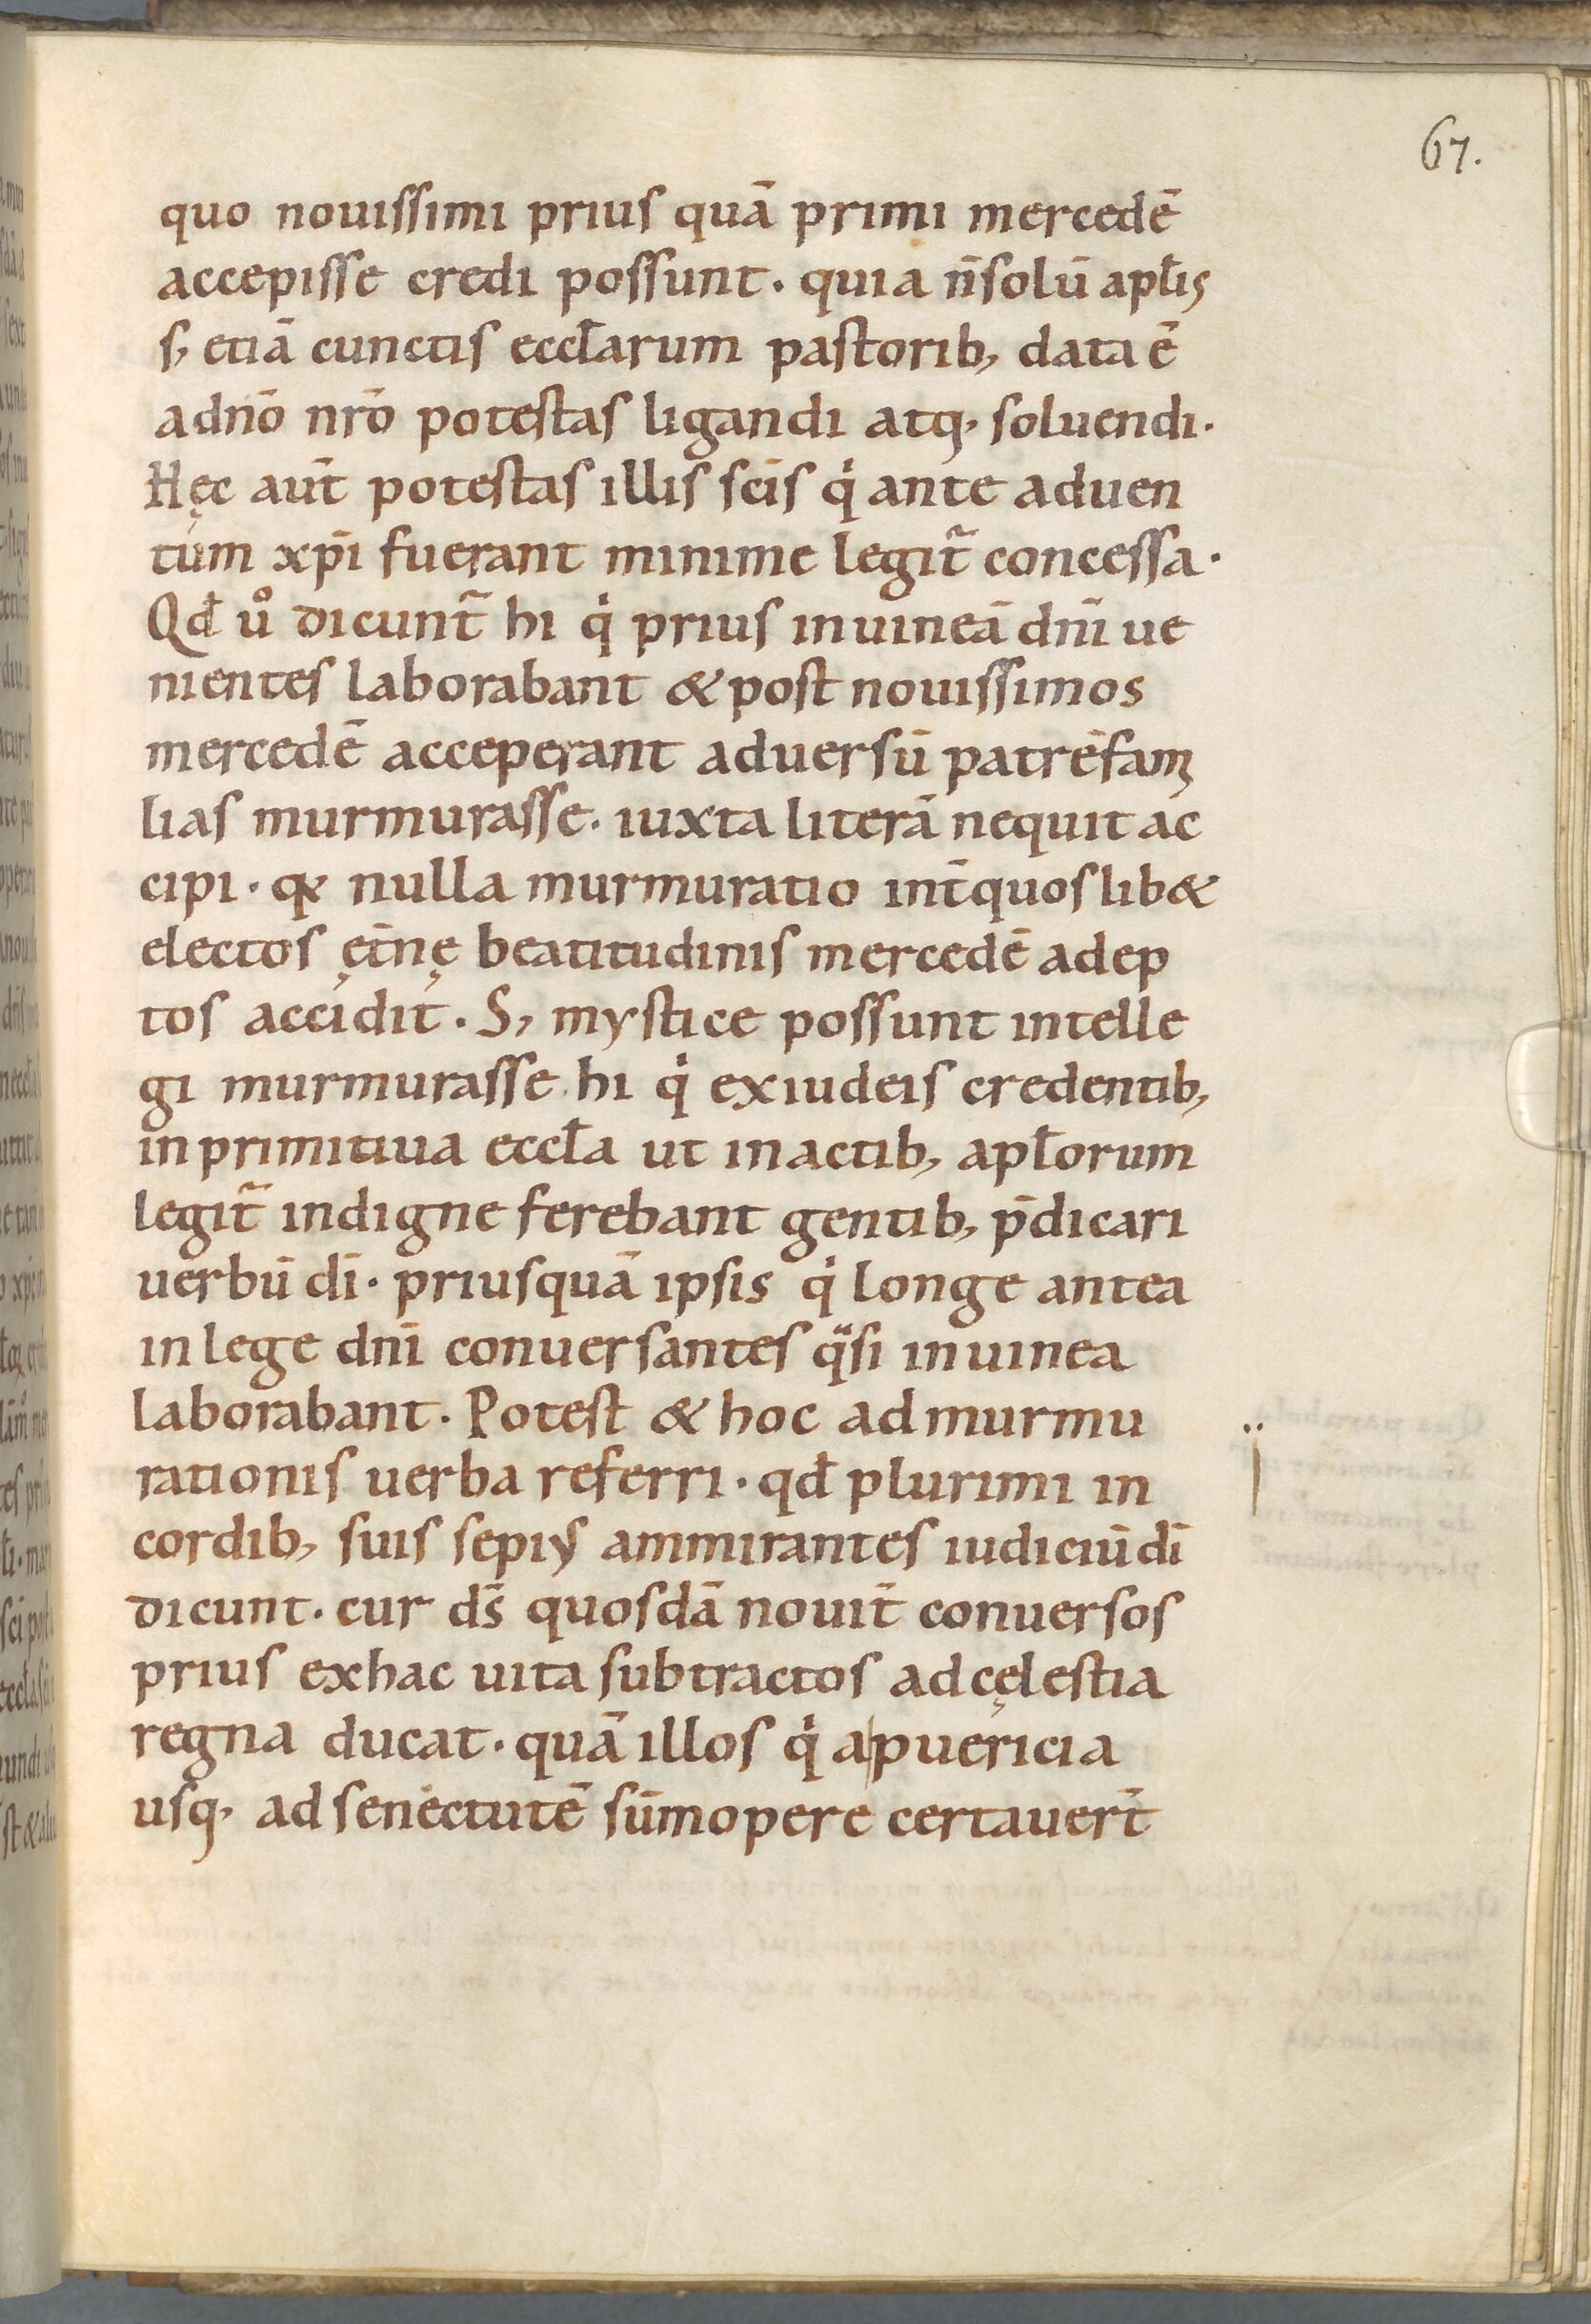 67.
quo nouissimi prius quā primi mercedē
accepisse credi possunt. quia n̄ solū apl̄is
s; etiā cunctis eccl̄arum pastorib; data ē
a dn̄o nr̄o potestas ligandi atq; soluendi.
Hęc aut̄ potestas illis sc̄is qͥ ante aduen
tum xp̄i fuerant minime legit̃ concessa.
Qd̄ uͦ dicunt̃ hi qͥ prius in uineā dn̄i ue
nientes laborabant & post nouissimos
mercedē acceperant aduersū patrēfami
lias murmurasse. iuxta literā nequit ac
cipi. qꝛ nulla murmuratio int̄ quoslib&
electos ęt̄nę beatitudinis mercedē adep
tos accidit. S; mystice possunt intelle
gi murmurasse hi qͥ ex iudeis credentib;
in primitiua eccl̄a ut in actib; apl̄orum
legit̃ indigne ferebant gentib; p̄dicari
uerbū dī. priusquā ipsis qͥ longe antea
in lege dn̄i conuersantes qͣsi in uinea
laborabant. Potest & hoc ad murmu
rationis uerba referri. qd̄ plurimi in
cordib; suis sepiꝰ ammirantes iudiciū dī
dicunt. cur ds̄ quosdā nouit̄ conuersos
prius ex hac uita subtractos ad cęlestia
regna ducat. quā illos qͥ a puericia
usq; ad senectutē sūmopere certauer̄t